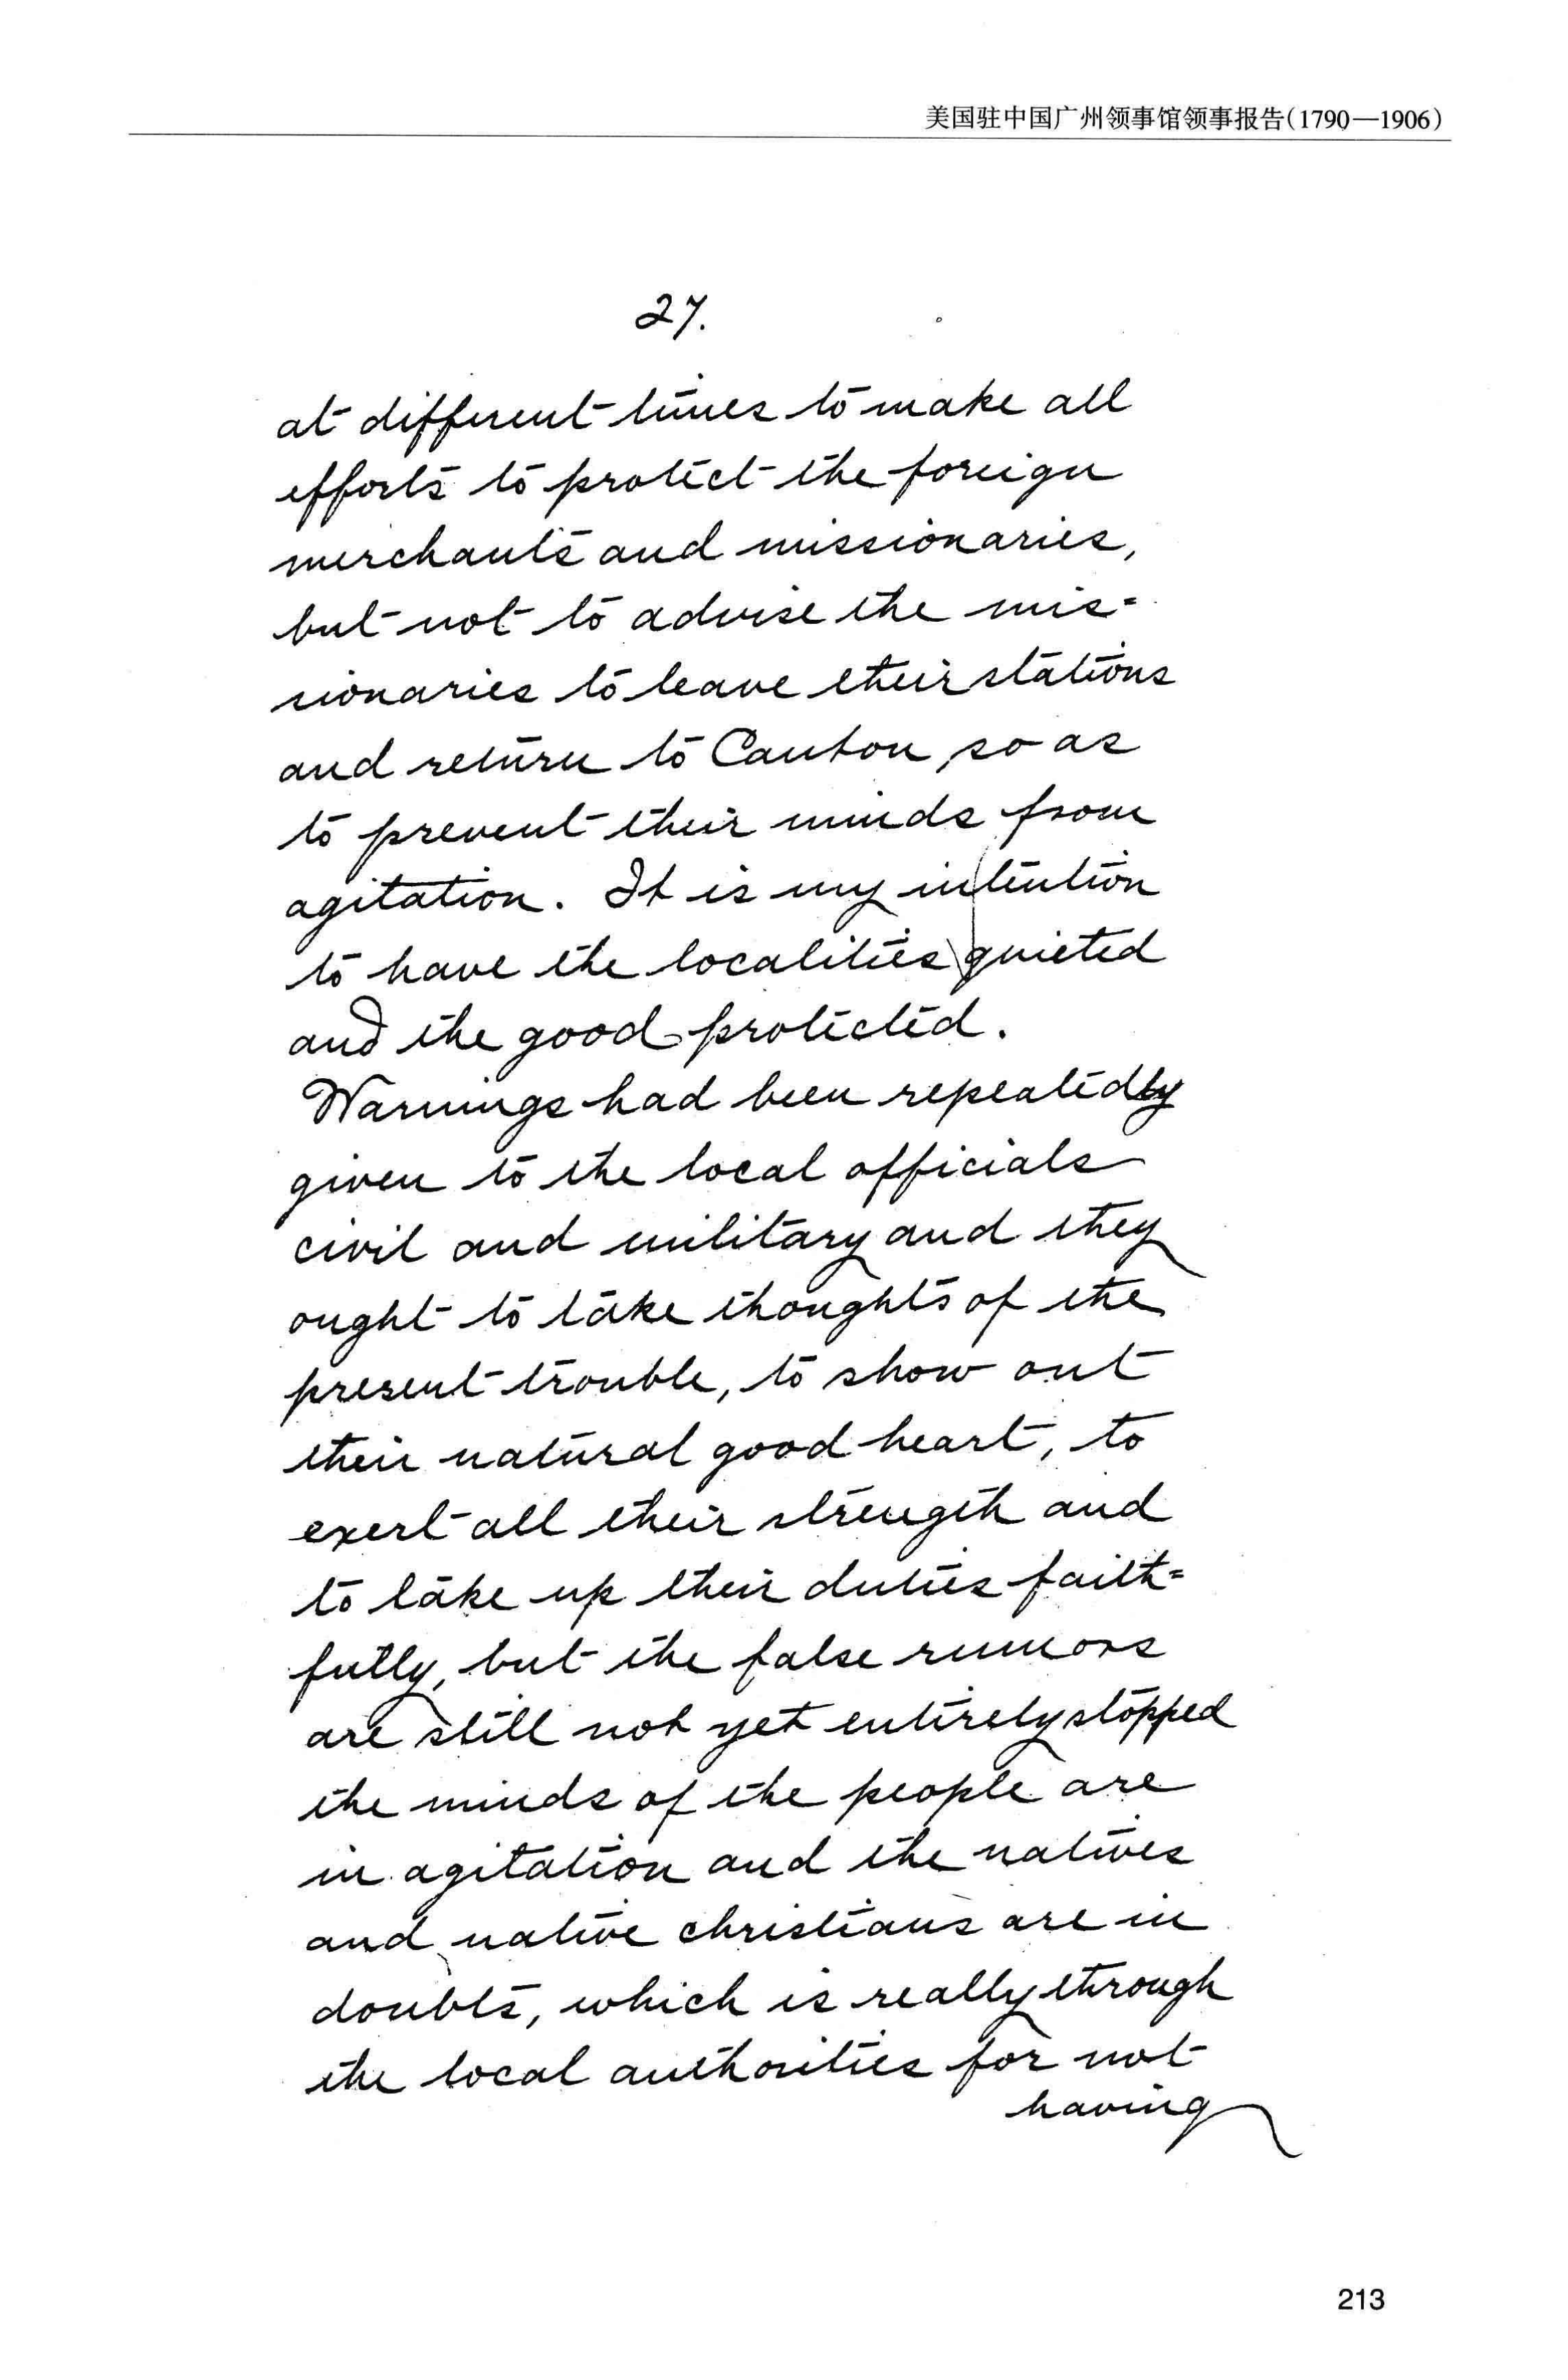 美国驻中国广州领事馆领事报告(1790—1906)
27.
at different times to make all
efforts to protect the foreign
merchants and missionaries,
but not to advise the mis=
sionaries to leave their stations
and return to Canton, so as
to prevent their minds from
agitation. It is my intention
to have the localities quieted
and the good protected.
Warnings had been repeatedly
given to the local officials
civil and military and they
ought to take thoughts of the
present trouble, to show out
their natural good heart, to
exert all their strength and
to take up their duties faith=
fully, but the false rumors
are still not yet entirely stopped
the minds of the people are
in agitation and the natives
and native christians are in
doubts, which is really through
the local authorities for not
having
213